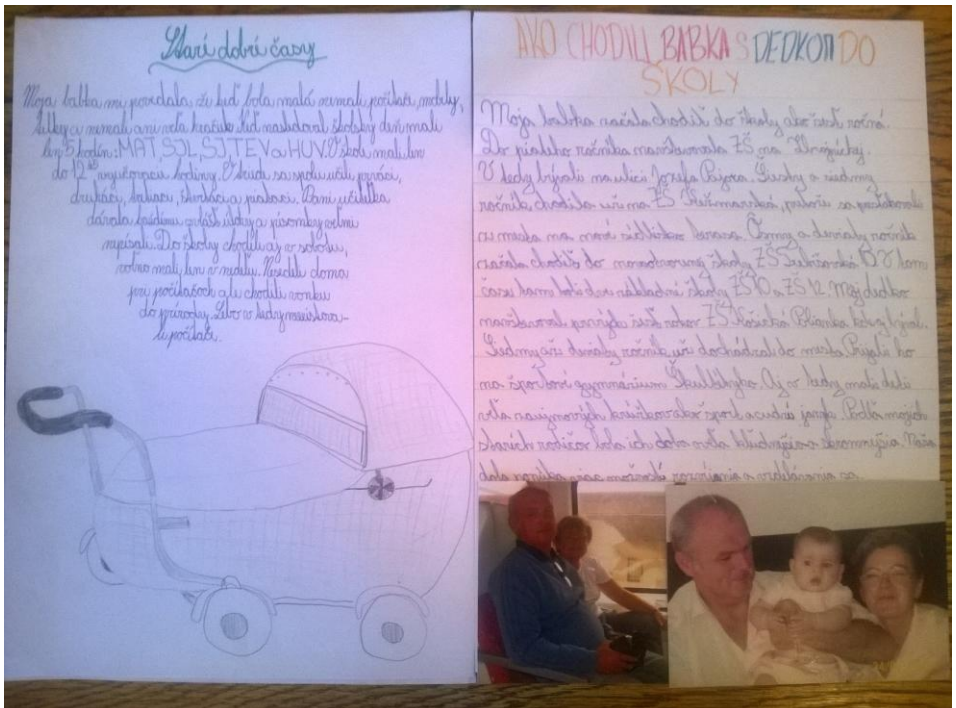 Starí dobrí časy
Moja babka mi povedala že keď bola malá nemali počítače, mobily,
a nemali ani veľa hračiek. Keď nasledoval školský deň mali
len 5 hodín: MAT, SJL, SJ, TEV a HUV. V škole mali len
do 12 vyučovacie hodiny. V triede sa spolu učili prváci,
druháci, tretiaci, štvrtáci a piataci. Pani učiteľka
dávala každému zvlášť úlohy a písomky veľmi
nepísali. Do školy chodili aj v sobotu,
voľno mali len v nedeľu. Nesedeli doma
pri počítačoch ale chodili vonku
do prírody. Lebo v tedy neexistova-
li počítače.
AKO CHODILI BABKA S DEDKOM DO
ŠKOLY
Moja babka začala chodiť do školy ako šesť ročná.
Do piateho ročníka navštevovala ZŠ na
V tedy bývali na ulici Jozefa Šiesty a siedmy
ročník chodila už na ZŠ Kežmarská, pretože sa presťahovali
z mesta na nové sídlisko terasa. Ôsmy a deviaty ročník
začala chodiť do novotvorenej školy ZŠ V tom
čase tam boli dve základné školy ZŠ 10 a ZŠ 12. Môj dedko
navštevoval prvých šesť rokov ZŠ Košická Polianka kde býval.
Siedmy až deviaty ročník už dochádzal do mesta. Prijali ho
na športové gymnázium Aj v tedy mali deti
veľa záujmových krúžkov ako šport a cudzie jazyky. Podľa mojich
starích rodičov bola ich doba kľudnejšia a skromnejšia. Naša
doba ponúka viac možností rozvíjania a vzdelávania sa.